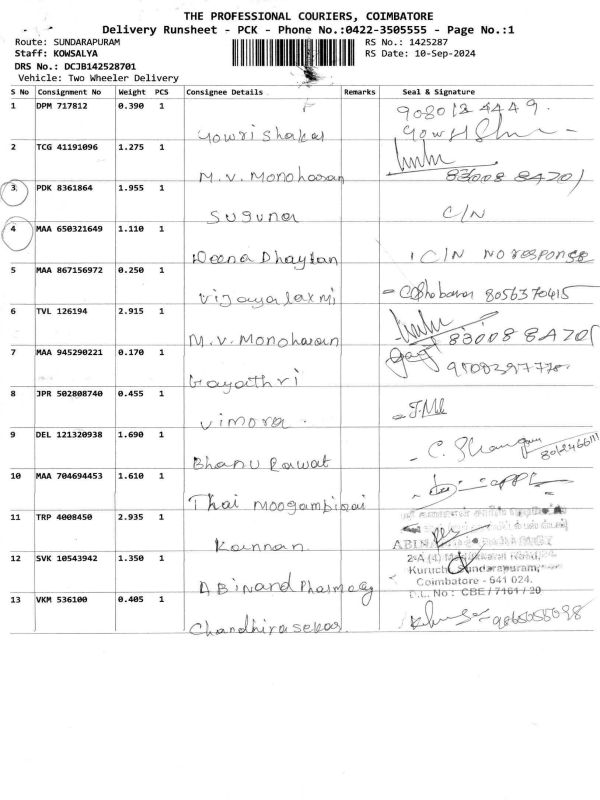 THE PROFESSIONAL COURIERS, COIMBATORE
Delivery Runsheet - PCK - Phone No.:0422-3505555 - Page No.:1
Route: SUNDARAPURAM
RS No.: 1425287
Staff: KOWSALYA
RS Date: 10-Sep-2024
DRS No.: DCJB142528701
Vehicle: Two Wheeler Delivery
S No Consignment No Weight PCS Consignee Details Remarks Seal & Signature
1 DPM 717812 0.390 1
Gowrishakar
2 TCG 41191096 1.275 1
M.V. Monoharan 83008 84701
3 PDK 8361864 1.955 1
Suguna C/N
4 MAA 650321649 1.110 1
Deena Dhaylan C/N NO RESPONSE
5 MAA 867156972 0.250 1
Vijayalaxmi 8056370415
6 TVL 126194 2.915 1
M.V. Monoharan 83008 84701
7 MAA 945290221 0.170 1
Gayathri
8 JPR 502808740 0.455 1
Vimora
9 DEL 121320938 1.690 1
Bhanu Rawat
10 MAA 704694453 1.610 1
Thai Moogambigai
11 TRP 4008450 2.935 1
Kannan
12 SVK 10543942 1.350 1
Kuruchi, Sundarapuram,
Coimbatore - 641 024.
D.L. No: CBE / 7161 / 20
Abinand Pharmacy
13 VKM 536100 0.405 1
Chandhirasekar. 9865055098